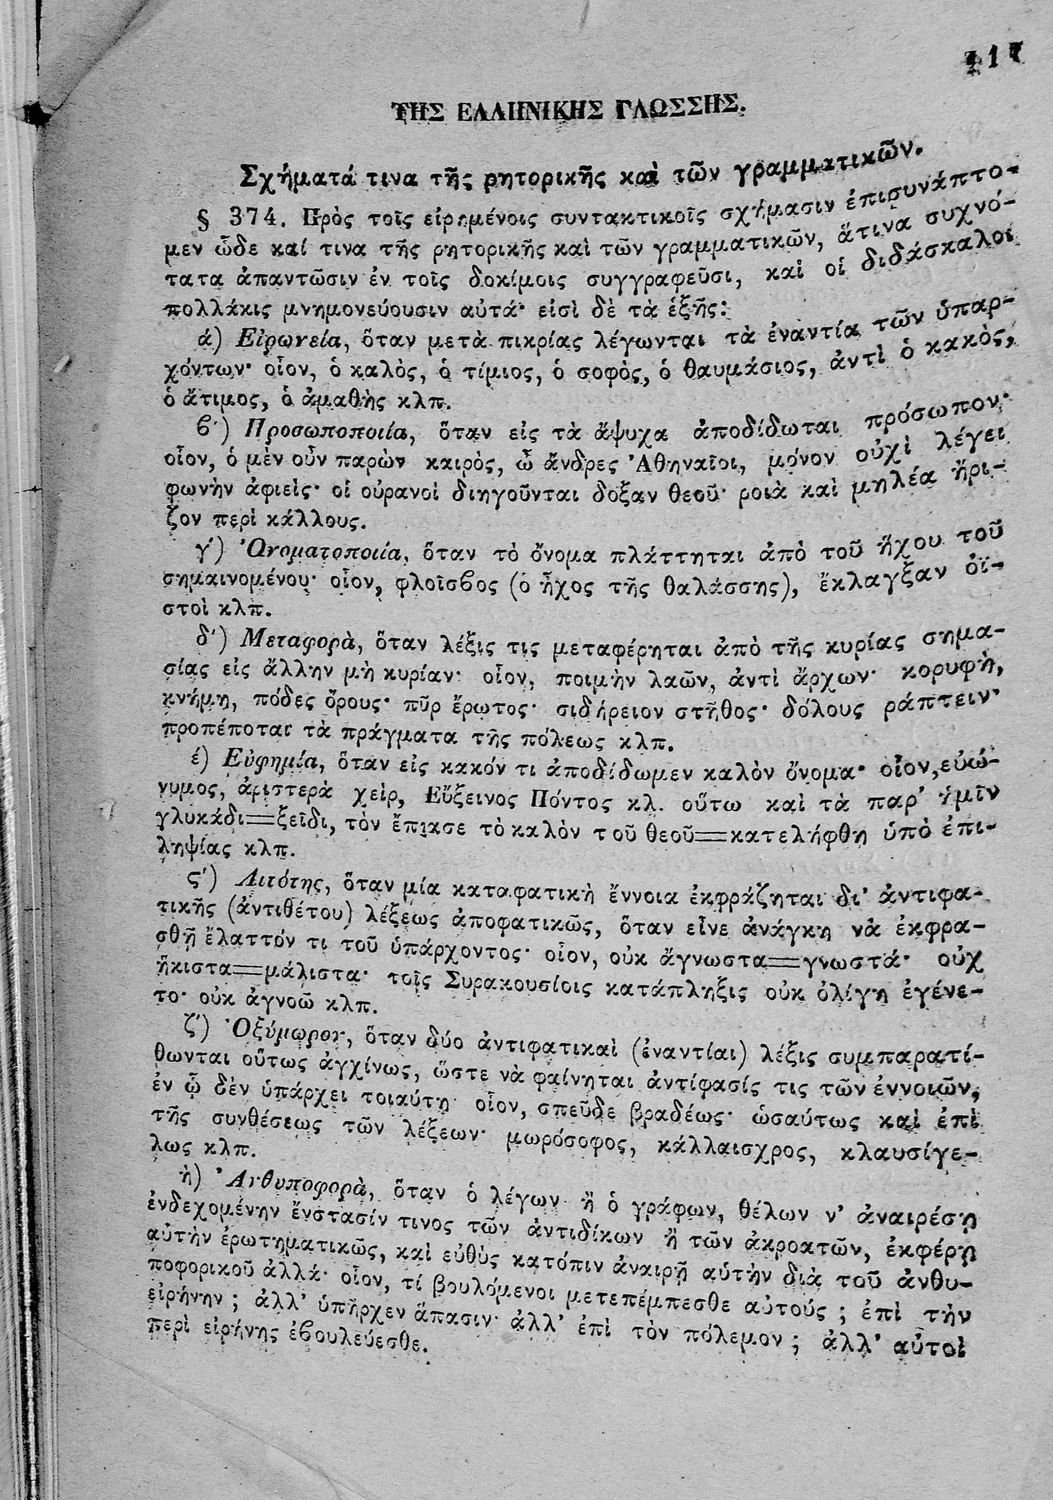 ΤΗΣ ΕΛΛΗΝΙΚΗΣ ΓΛΩΣΣΗΣ.
Σχήματά τινα τῆς ρητορικῆς καὶ τῶν γραμματικῶν.
§ 374. Πρὸς τοῖς εἰρημένοις συντακτικοῖς σχήμασιν ἐπισυνάπτο-
μεν ὧδε καί τινα τῆς ρητορικῆς καὶ τῶν γραμματικῶν, ἅτινα συχνό-
τατα ἀπαντῶσιν ἐν τοῖς δοκίμοις συγγραφεῦσι, καὶ οἱ διδάσκαλοι
πολλάκις μνημονεύουσιν αὐτά· εἰσὶ δὲ τὰ ἑξῆς:
ά) Εἰρωνεία, ὅταν μετὰ πικρίας λέγωνται τὰ ἐναντία τῶν ὑπαρ-
χόντων· οἷον, ὁ καλὸς, ὁ τίμιος, ὁ σοφὸς, ὁ θαυμάσιος, ἀντὶ ὁ κακὸς,
ὁ ἄτιμος, ὁ ἀμαθὴς κλπ.
ϐ´) Προσωποποιΐα, ὅταν εἰς τὰ ἄψυχα ἀποδίδωται πρόσωπον·
οἷον, ὁ μὲν οὖν παρὼν καιρὸς, ὦ ἄνδρες Ἀθηναῖοι, μόνον οὐχὶ λέγει
φωνὴν ἀφιείς· οἱ οὐρανοὶ διηγοῦνται δόξαν θεοῦ· ροιὰ καὶ μηλέα ἤρι-
ζον περὶ κάλλους.
γ´) Ὀνοματοποιΐα, ὅταν τὸ ὄνομα πλάττηται ἀπὸ τοῦ ἤχου τοῦ
σημαινομένου· οἷον, φλοῖσϐος (ὁ ἦχος τῆς θαλάσσης), ἔκλαγξαν ὀϊ-
στοὶ κλπ.
δ´) Μεταφορὰ, ὅταν λέξις τις μεταφέρηται ἀπὸ τῆς κυρίας σημα-
σίας εἰς ἄλλην μὴ κυρίαν· οἷον, ποιμὴν λαῶν, ἀντὶ ἄρχων· κορυφὴ,
κνήμη, πόδες ὄρους· πῦρ ἔρωτος· σιδήρειον στῆθος· δόλους ράπτειν·
προπέποται τὰ πράγματα τῆς πόλεως κλπ.
έ) Εὐφημία, ὅταν εἰς κακόν τι ἀποδίδωμεν καλὸν ὄνομα· οἷον, εὐώ-
νυμος, ἀριστερὰ χεὶρ, Εὔξεινος Πόντος κλ. οὕτω καὶ τὰ παρ' ἡμῖν
γλυκάδι=ξεῖδι, τὸν ἔπιασε τὸ καλὸν τοῦ θεοῦ=κατελήφθη ὑπὸ ἐπι-
ληψίας κλπ.
ς´) Λιτότης, ὅταν μία καταφατικὴ ἔννοια ἐκφράζηται δι' ἀντιφα-
τικῆς (ἀντιθέτου) λέξεως ἀποφατικῶς, ὅταν εἶνε ἀνάγκη νὰ ἐκφρα-
σθῇ ἔλαττόν τι τοῦ ὑπάρχοντος· οἷον, οὐκ ἄγνωστα=γνωστά· οὐχ
ἥκιστα=μάλιστα· τοῖς Συρακουσίοις κατάπληξις οὐκ ὀλίγη ἐγένε-
το· οὐκ ἀγνοῶ κλπ.
ζ´) Ὀξύμωρον, ὅταν δύο ἀντιφατικαὶ (ἐναντίαι) λέξις συμπαρατί-
θωνται οὕτως ἀγχίνως, ὥστε νὰ φαίνηται ἀντίφασίς τις τῶν ἐννοιῶν,
ἐν ᾧ δὲν ὑπάρχει τοιαύτη· οἷον, σπεῦδε βραδέως· ὡσαύτως καὶ ἐπὶ
τῆς συνθέσεως τῶν λέξεων· μωρόσοφος, κάλλαισχρος, κλαυσίγε-
λως κλπ.
ή) Ἀνθυποφορὰ, ὅταν ὁ λέγων ἢ ὁ γράφων, θέλων ν' ἀναιρέσῃ
ἐνδεχομένην ἔνστασίν τινος τῶν ἀντιδίκων ἢ τῶν ἀκροατῶν, ἐκφέρῃ
αὐτὴν ἐρωτηματικῶς, καὶ εὐθὺς κατόπιν ἀναιρῇ αὐτὴν διὰ τοῦ ἀνθυ-
ποφορικοῦ ἀλλά· οἷον, τί βουλόμενοι μετεπέμπεσθε αὐτούς ; ἐπὶ τὴν
εἰρήνην ; ἀλλ' ὑπῆρχεν ἅπασιν· ἀλλ' ἐπὶ τὸν πόλεμον ; ἀλλ' αὐτοὶ
περὶ εἰρήνης ἐϐουλεύεσθε.